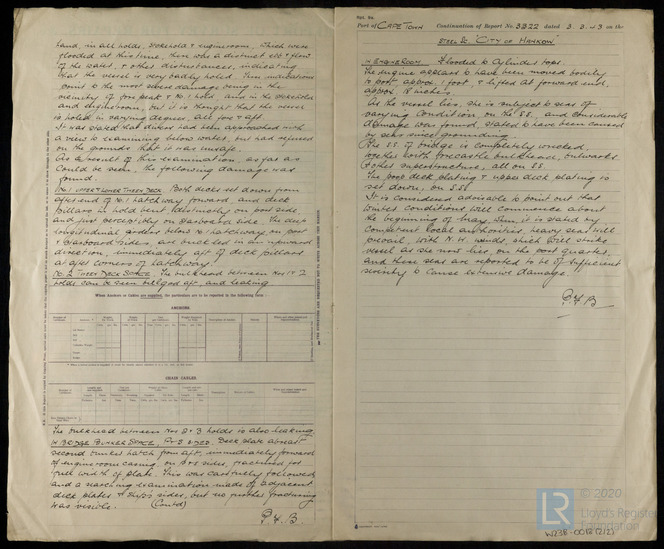 hand, in all holds, stokehold & engineroom, which were
flooded at this time, there was a distinct ebb & flow
of the water, & other disturbances, indicating
that the vessel is very badly holed. These indications
point to the most severe damage being in the
vicinity of fore peak & No.1 hold, and in the stokehold
and engineroom, but it is thought that the vessel
is holed in varying degree, all fore & aft.
It was stated that divers had been approached with
a view to examining below water, but had refused
on the grounds that it was unsafe.
As a result of this examination, as far as
could be seen, the following damage was
found.
No.1 upper & lower Tween Deck. Both decks set down from
after end of No.1 hatchway forward, and deck
pillars in hold bent, distinctly on port side,
and just perceptibly on starboard side. The deep
longitudinal girders below No.1 hatchway on port
& starboard sides, are buckled in an upward
direction, immediately aft of deck pillars
at after corners of hatchway.
No. 2 Tween Deck Space. The bulkhead between Nos 1 & 2
holds can be seen bulged aft, and leaking.
When Anchors or Cables are supplied, the particulars are to be reported in the following form:
ANCHORS.
CHAIN CABLES.
The bulkhead between Nos 2 & 3 holds is also leaking.
In Bridge Bunker Space, P & S sides. Deck plate abreast
second bunker hatch from aft, immediately forward
of engineroom casing, on P & S sides, fractured for
full width of plate. This was carefully followed
and a searching examination made of adjacent
deck plates & ship's sides, but no further fracturing
was visible. (Contd)
P. H. B.
Rpt. 9a.
Port of CAPE TOWN Continuation of Report No. 3322 dated 3. 3. 43 on the
STEEL SC "CITY OF HANKOW"
IN ENGINEROOM Flooded to cylinder tops.
The engine appears to have been moved bodily
to port approx. 1 foot, & lifted at forward end,
approx 8 inches.
As the vessel lies, she is subject to seas of
varying condition, on the S.S., and considerable
damage was found, stated to have been caused
by seas since grounding.
The S.S. of bridge is completely wrecked,
together with forecastle bulkhead, bulwarks
& other superstructure, all on S.S.
The poop deck plating & upper deck plating is
set down, on S.S.
It is considered advisable to point out that
winter conditions will commence about
the beginning of May, when, it is stated by
competent local authorities, heavy seas will
prevail, with N.W. winds, which will strike
vessel as she now lies, on the port quarter,
and these seas are reported to be of sufficient
severity to cause extensive damage.
P. H. B
LR © 2020
Lloyd's Register
Foundation
W238-0012 (2/2)